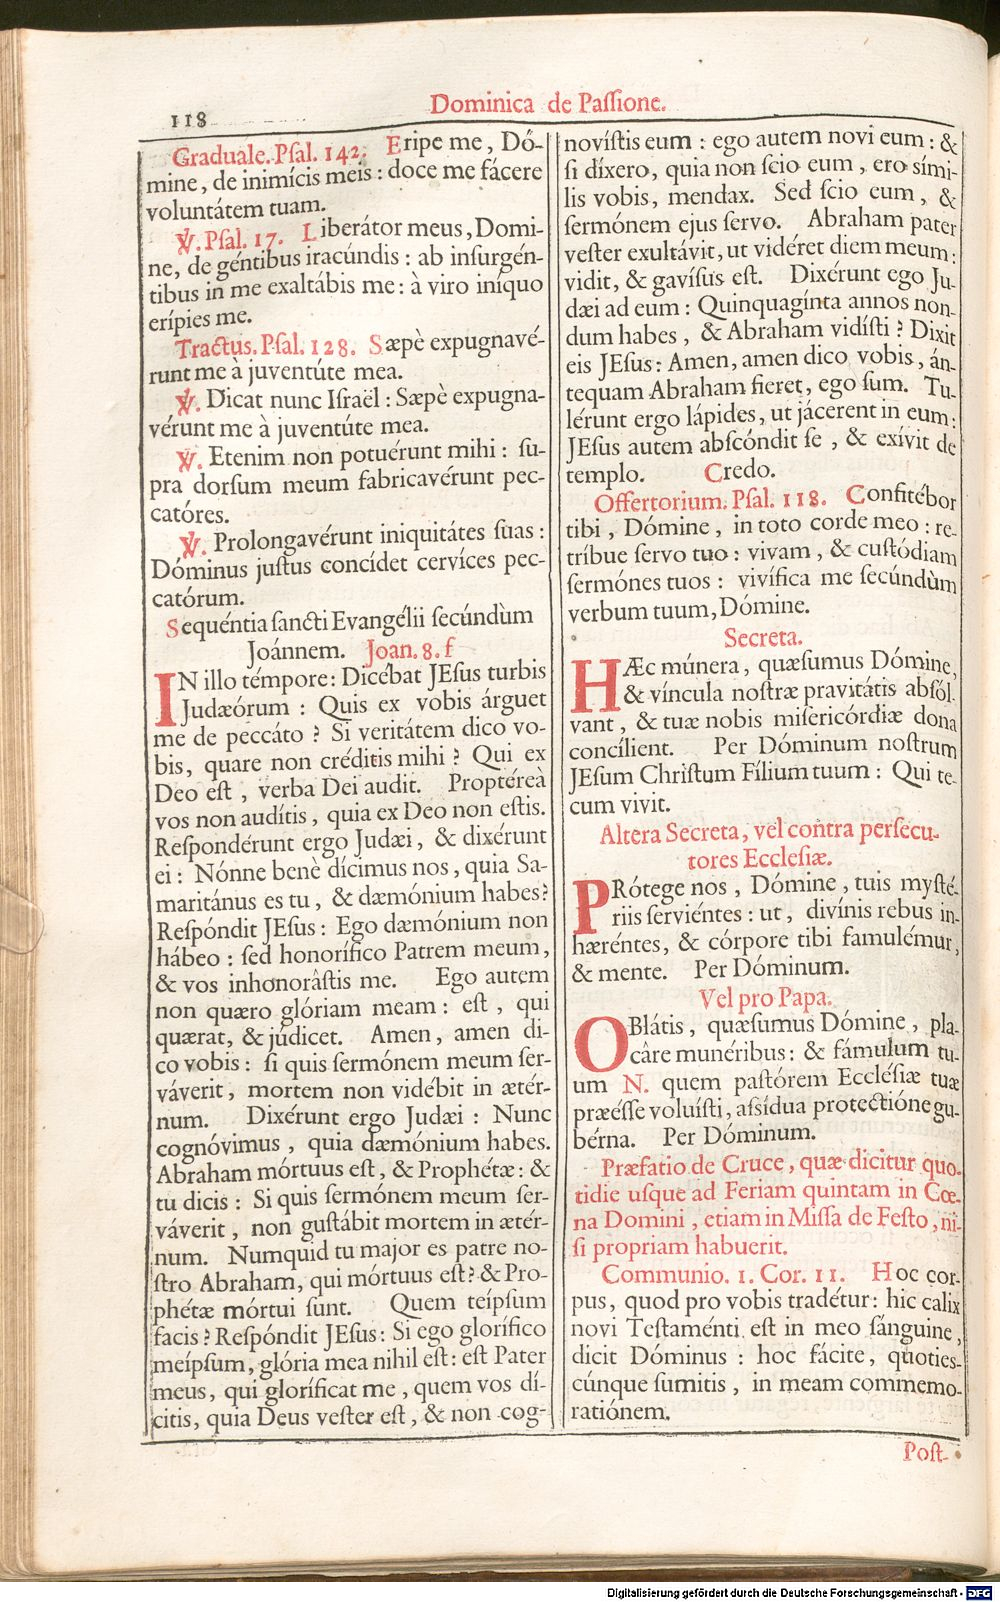 118
Dominica de Paſſione.
Graduale. Pſal. 142. Eripe me, Dó-
mine, de inimícis meis : doce me fácere
voluntátem tuam.
℣. Pſal. 17. Liberátor meus, Domi-
ne, de géntibus iracúndis : ab inſurgén-
tibus in me exaltábis me : à viro iníquo
erípies me.
Tractus. Pſal. 128. Sæpè expugnavé-
runt me à juventúte mea.
℣. Dicat nunc Iſraël : Sæpè expugna-
vérunt me à juventúte mea.
℣. Etenim non potuérunt mihi : ſu-
pra dorſum meum fabricavérunt pec-
catóres.
℣. Prolongavérunt iniquitátes ſuas :
Dóminus juſtus concídet cervíces pec-
catórum.
Sequéntia ſancti Evangélii ſecúndùm
Joánnem. Joan. 8. f
IN illo témpore : Dicébat JEſus turbis
Judæórum : Quis ex vobis árguet
me de peccáto ? Si veritátem dico vo-
bis, quare non créditis mihi ? Qui ex
Deo eſt , verba Dei audit. Proptéreà
vos non audítis , quia ex Deo non eſtis.
Reſpondérunt ergo Judæi , & dixérunt
ei : Nónne benè dícimus nos , quia Sa-
maritánus es tu , & dæmónium habes ?
Reſpóndit JEſus : Ego dæmónium non
hábeo : ſed honorífico Patrem meum ,
& vos inhonorâſtis me. Ego autem
non quæro glóriam meam : eſt , qui
quærat, & júdicet. Amen, amen di-
co vobis : ſi quis ſermónem meum ſer-
váverit , mortem non vidébit in ætér-
num. Dixérunt ergo Judæi : Nunc
cognóvimus , quia dæmónium habes.
Abraham mórtuus eſt , & Prophétæ : &
tu dicis : Si quis ſermónem meum ſer-
váverit , non guſtábit mortem in ætér-
num. Numquid tu major es patre no-
ſtro Abraham, qui mórtuus eſt ? & Pro-
phétæ mórtui ſunt. Quem teípſum
facis ? Reſpóndit JEſus : Si ego glorífico
meípſum, glória mea nihil eſt : eſt Pater
meus, qui gloríficat me , quem vos dí-
citis, quia Deus veſter eſt , & non cog-
novíſtis eum : ego autem novi eum : &
ſi díxero, quia non ſcio eum , ero sími-
lis vobis, mendax. Sed ſcio eum , &
ſermónem ejus ſervo. Abraham pater
veſter exultávit, ut vidéret diem meum :
vidit, & gavíſus eſt. Dixérunt ergo Ju-
dæi ad eum : Quinquagínta annos non-
dum habes , & Abraham vidíſti ? Dixit
eis JEſus : Amen, amen dico vobis , án-
tequam Abraham fieret, ego ſum. Tu-
lérunt ergo lápides, ut jácerent in eum :
JEſus autem abſcóndit ſe , & exívit de
templo. Credo.
Offertorium. Pſal. 118. Confitébor
tibi , Dómine , in toto corde meo : re-
tríbue ſervo tuo : vivam , & cuſtódiam
ſermónes tuos : vivífica me ſecúndùm
verbum tuum, Dómine.
Secreta.
HÆc múnera , quæſumus Dómine,
& víncula noſtræ pravitátis abſól-
vant , & tuæ nobis miſericórdiæ dona
concílient. Per Dóminum noſtrum
JEſum Chriſtum Fílium tuum : Qui te-
cum vivit.
Altera Secreta, vel contra perſecu-
tores Eccleſiæ.
PRótege nos , Dómine , tuis myſté-
riis ſerviéntes : ut , divínis rebus in-
hæréntes, & córpore tibi famulémur,
& mente. Per Dóminum.
Vel pro Papa.
OBlátis , quæſumus Dómine , pla-
câre munéribus : & fámulum tu-
um N. quem paſtórem Ecclésiæ tuæ
præéſſe voluíſti, aſſídua protectióne gu-
bérna. Per Dóminum.
Præfatio de Cruce, quæ dicitur quo-
tidie uſque ad Feriam quintam in Cœ-
na Domini , etiam in Miſſa de Feſto , ni-
ſi propriam habuerit.
Communio. 1. Cor. 11. Hoc cor-
pus, quod pro vobis tradétur : hic calix
novi Teſtaménti eſt in meo ſánguine ,
dicit Dóminus : hoc fácite, quoties-
cúnque ſumitis , in meam commemo-
ratiónem.
Poſt-
Digitalisierung gefördert durch die Deutsche Forschungsgemeinschaft - DFG